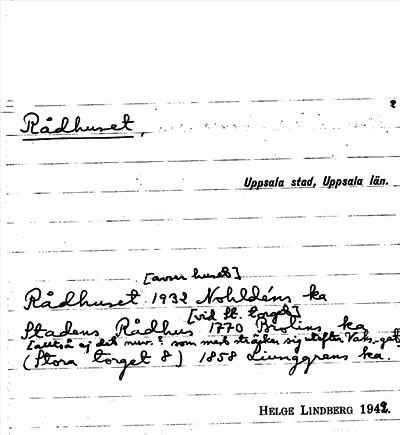 Rådhuset,
Uppsala stad, Uppsala län.
[avser huset]
Rådhuset 1932 Nohldéns ka
[vid St. torget]
Stadens Rådhus 1770 Brolins ka
[alltså ej det nuv.? som med sträcker sig utefter Vaks.gat
(Stora torget 8) 1858 Ljunggrens ka.
HELGE LINDBERG 1942.